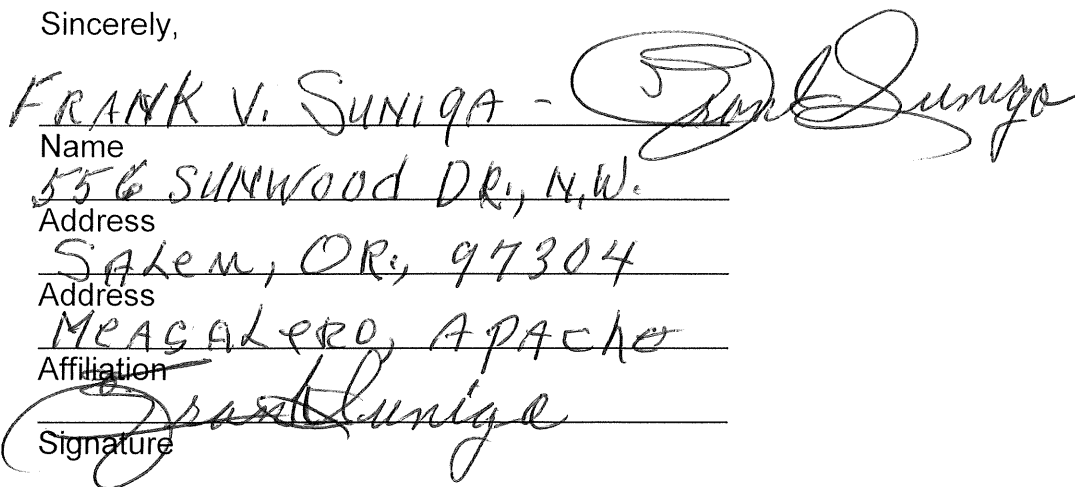 Sincerely,
FRANK V. SUNIGA - Frank Suniga
Name
556 SUNWOOD DR., N.W.
Address
SALEM, OR., 97304
Address
MEASCALERO, APACHE
Affiliation
Frank Suniga
Signature